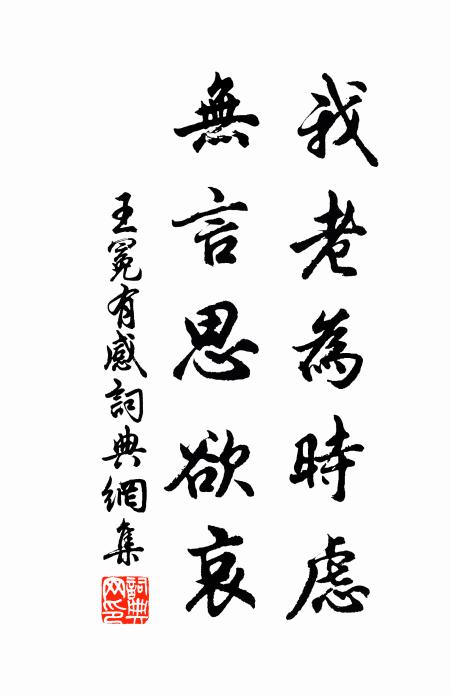 我老為時慮
無言思欲哀
王冕有感詞典網集
詞典网印